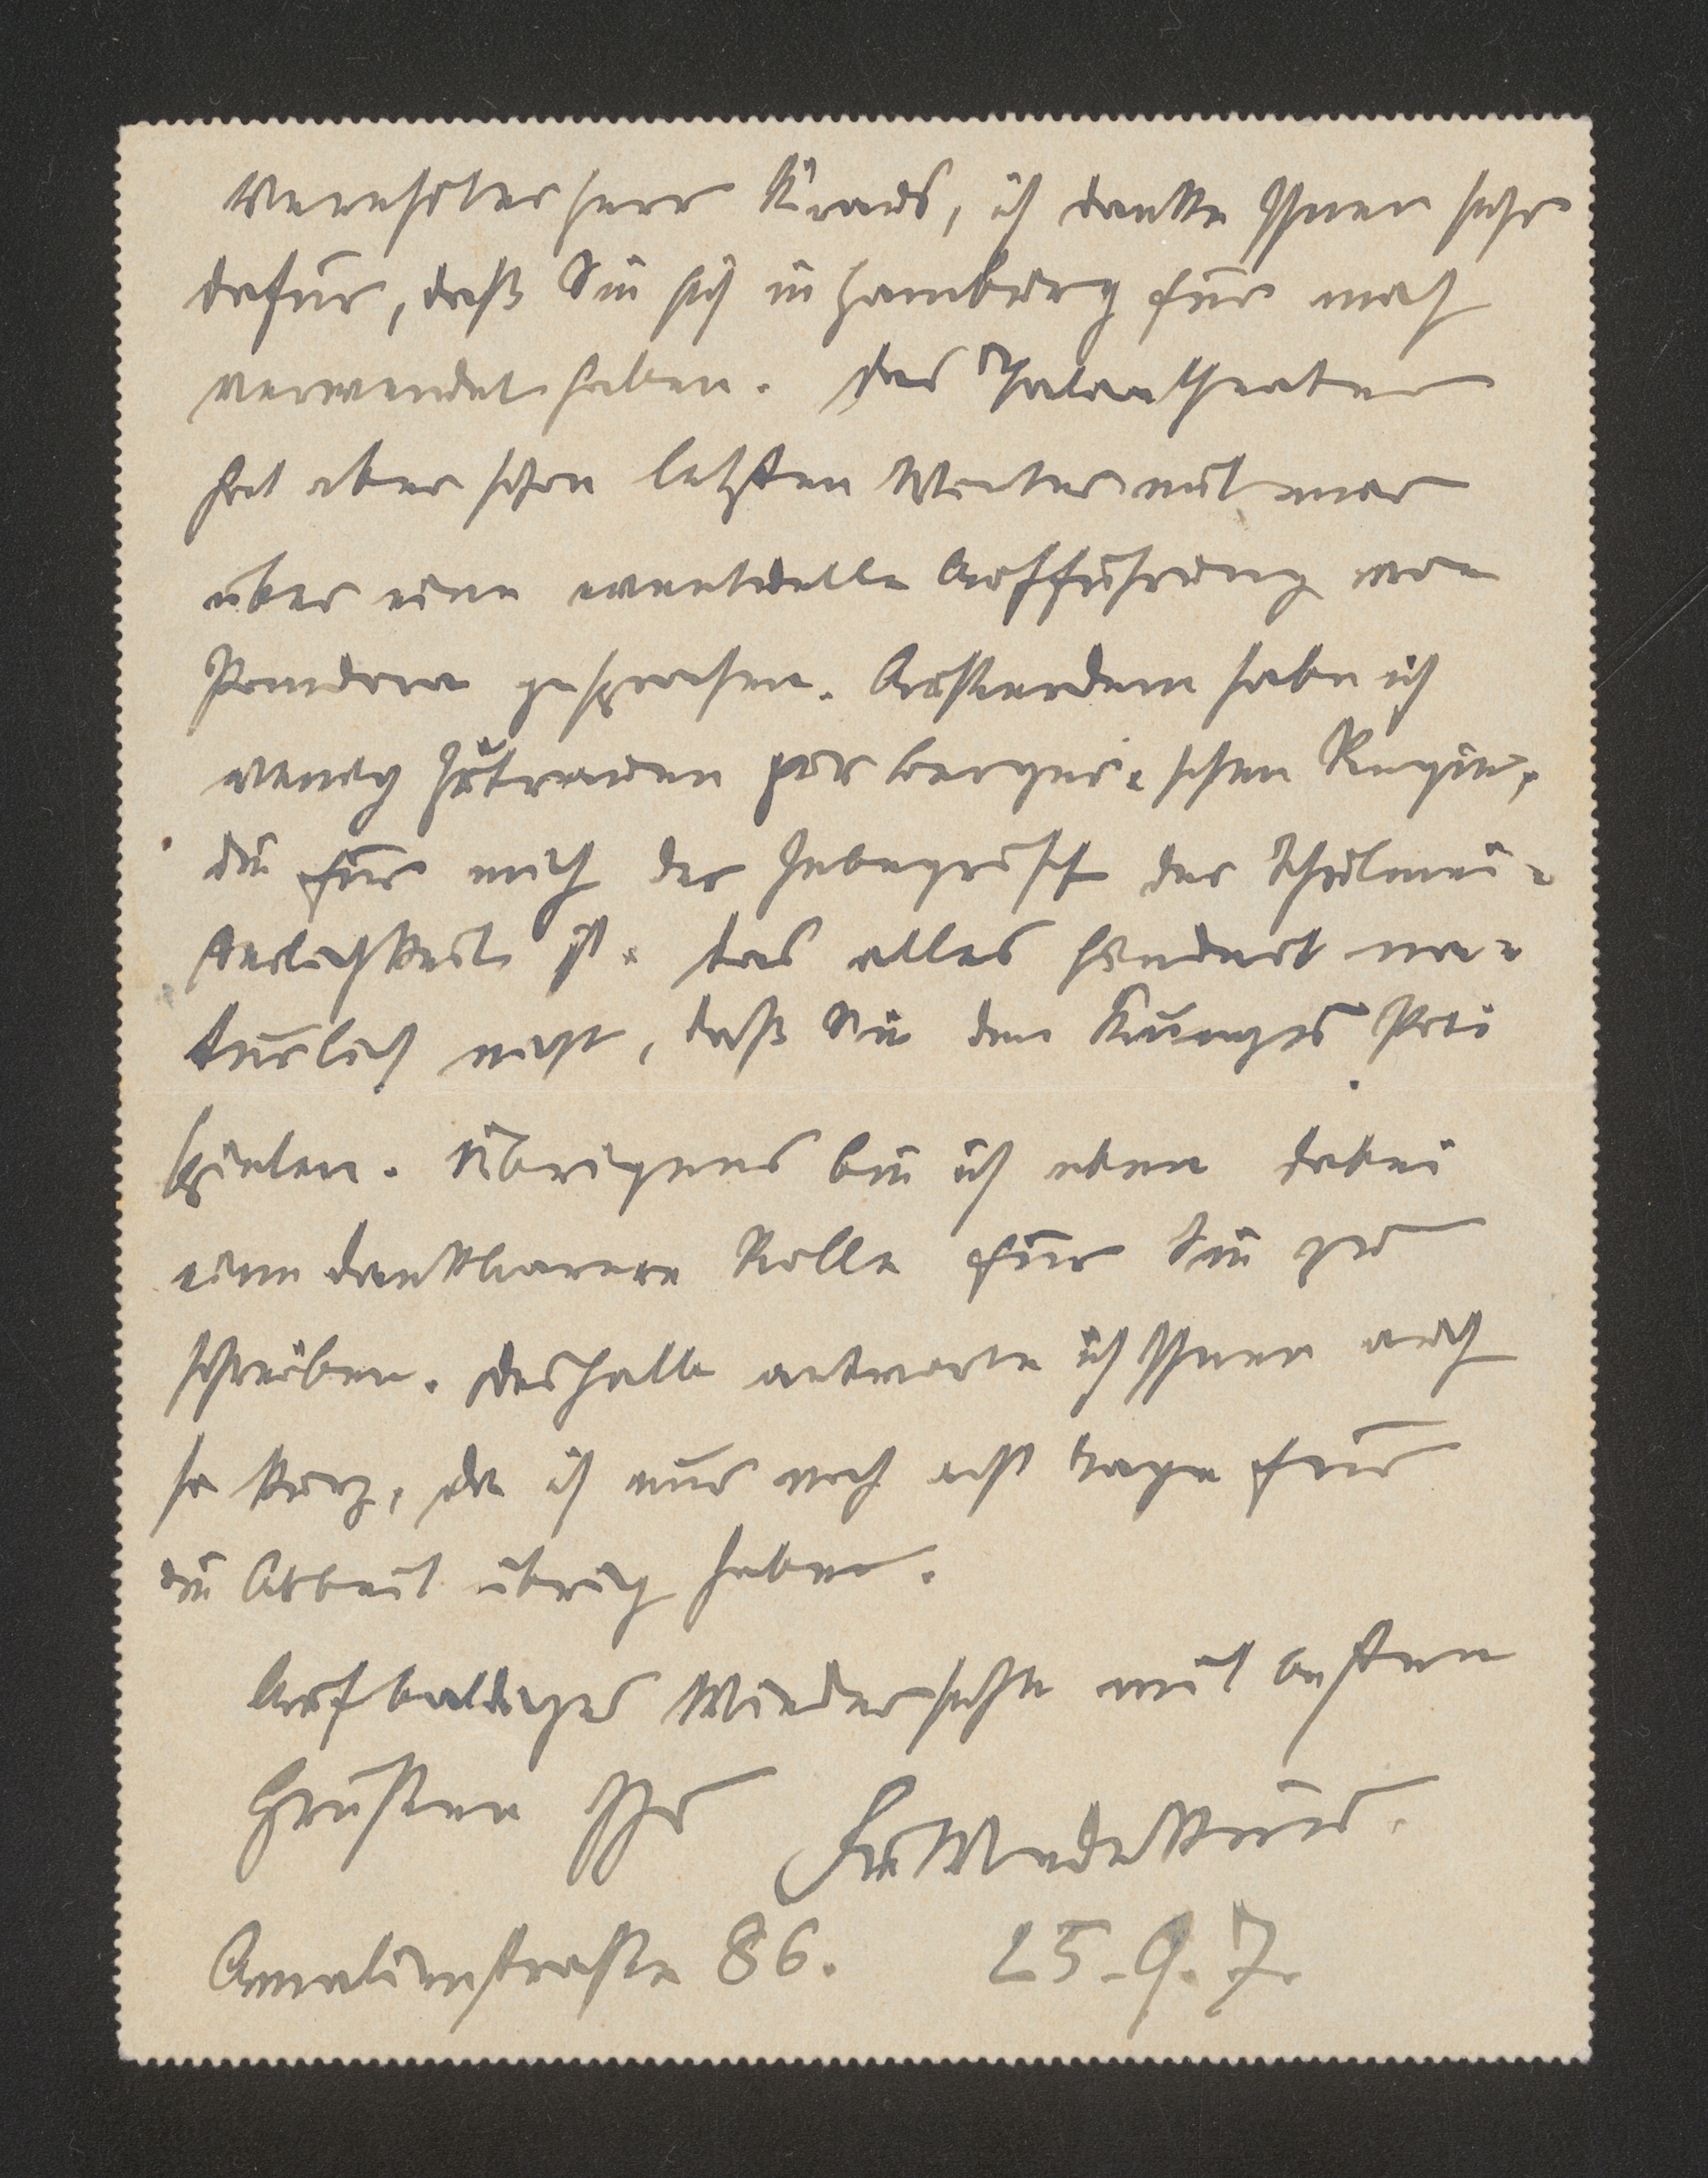 Verehrter Herr Kraus, ich danke Ihnen sehr
dafür, daß Sie sich in Hamburg für mich
verwendet haben. Das Thaliatheater
hat aber schon letzten Winter mit mir
über eine eventuelle Aufführung von
Pandora gesprochen. Außerdem habe ich
wenig Zutrauen zur Berger-schen Regie,
die für mich der Inbegriff der Schulmei-
sterlichkeit ist. Das alles hindert na-
türlich nicht, daß Sie den Kungu Poti
spielen. Übrigens bin ich eben dabei
eine dankbarere Rolle für Sie zu
schreiben. Deshalb antworte ich Ihnen auch
so kurz, da ich nur noch acht Tage für
die Arbeit übrig habe.
Auf baldiges Wiedersehn mit besten
Grüßen Ihr FrWedekind.
Amalienstraße 86. 25.9.7.